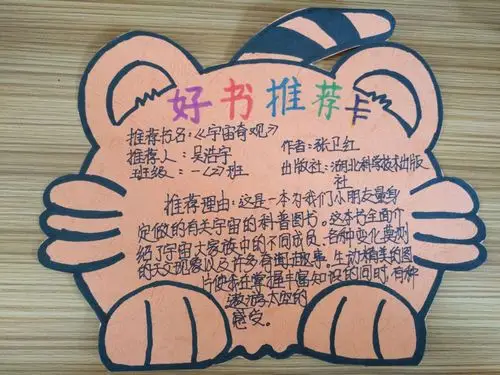 好书推荐卡
推荐书名:《宇宙奇观》 作者:张卫红
推荐人:吴浩宇 出版社:湖北科学技术出版社
班级:一(2)班
推荐理由:这是一本为我们小朋友量身
定做的有关宇宙的科普图书。这本书全面介
绍了宇宙大家族中的不同成员、各种变化莫测
的天文现象以及许多有趣故事。生动精美的图
片使我在掌握丰富知识的同时,有种
遨游太空的
感受。